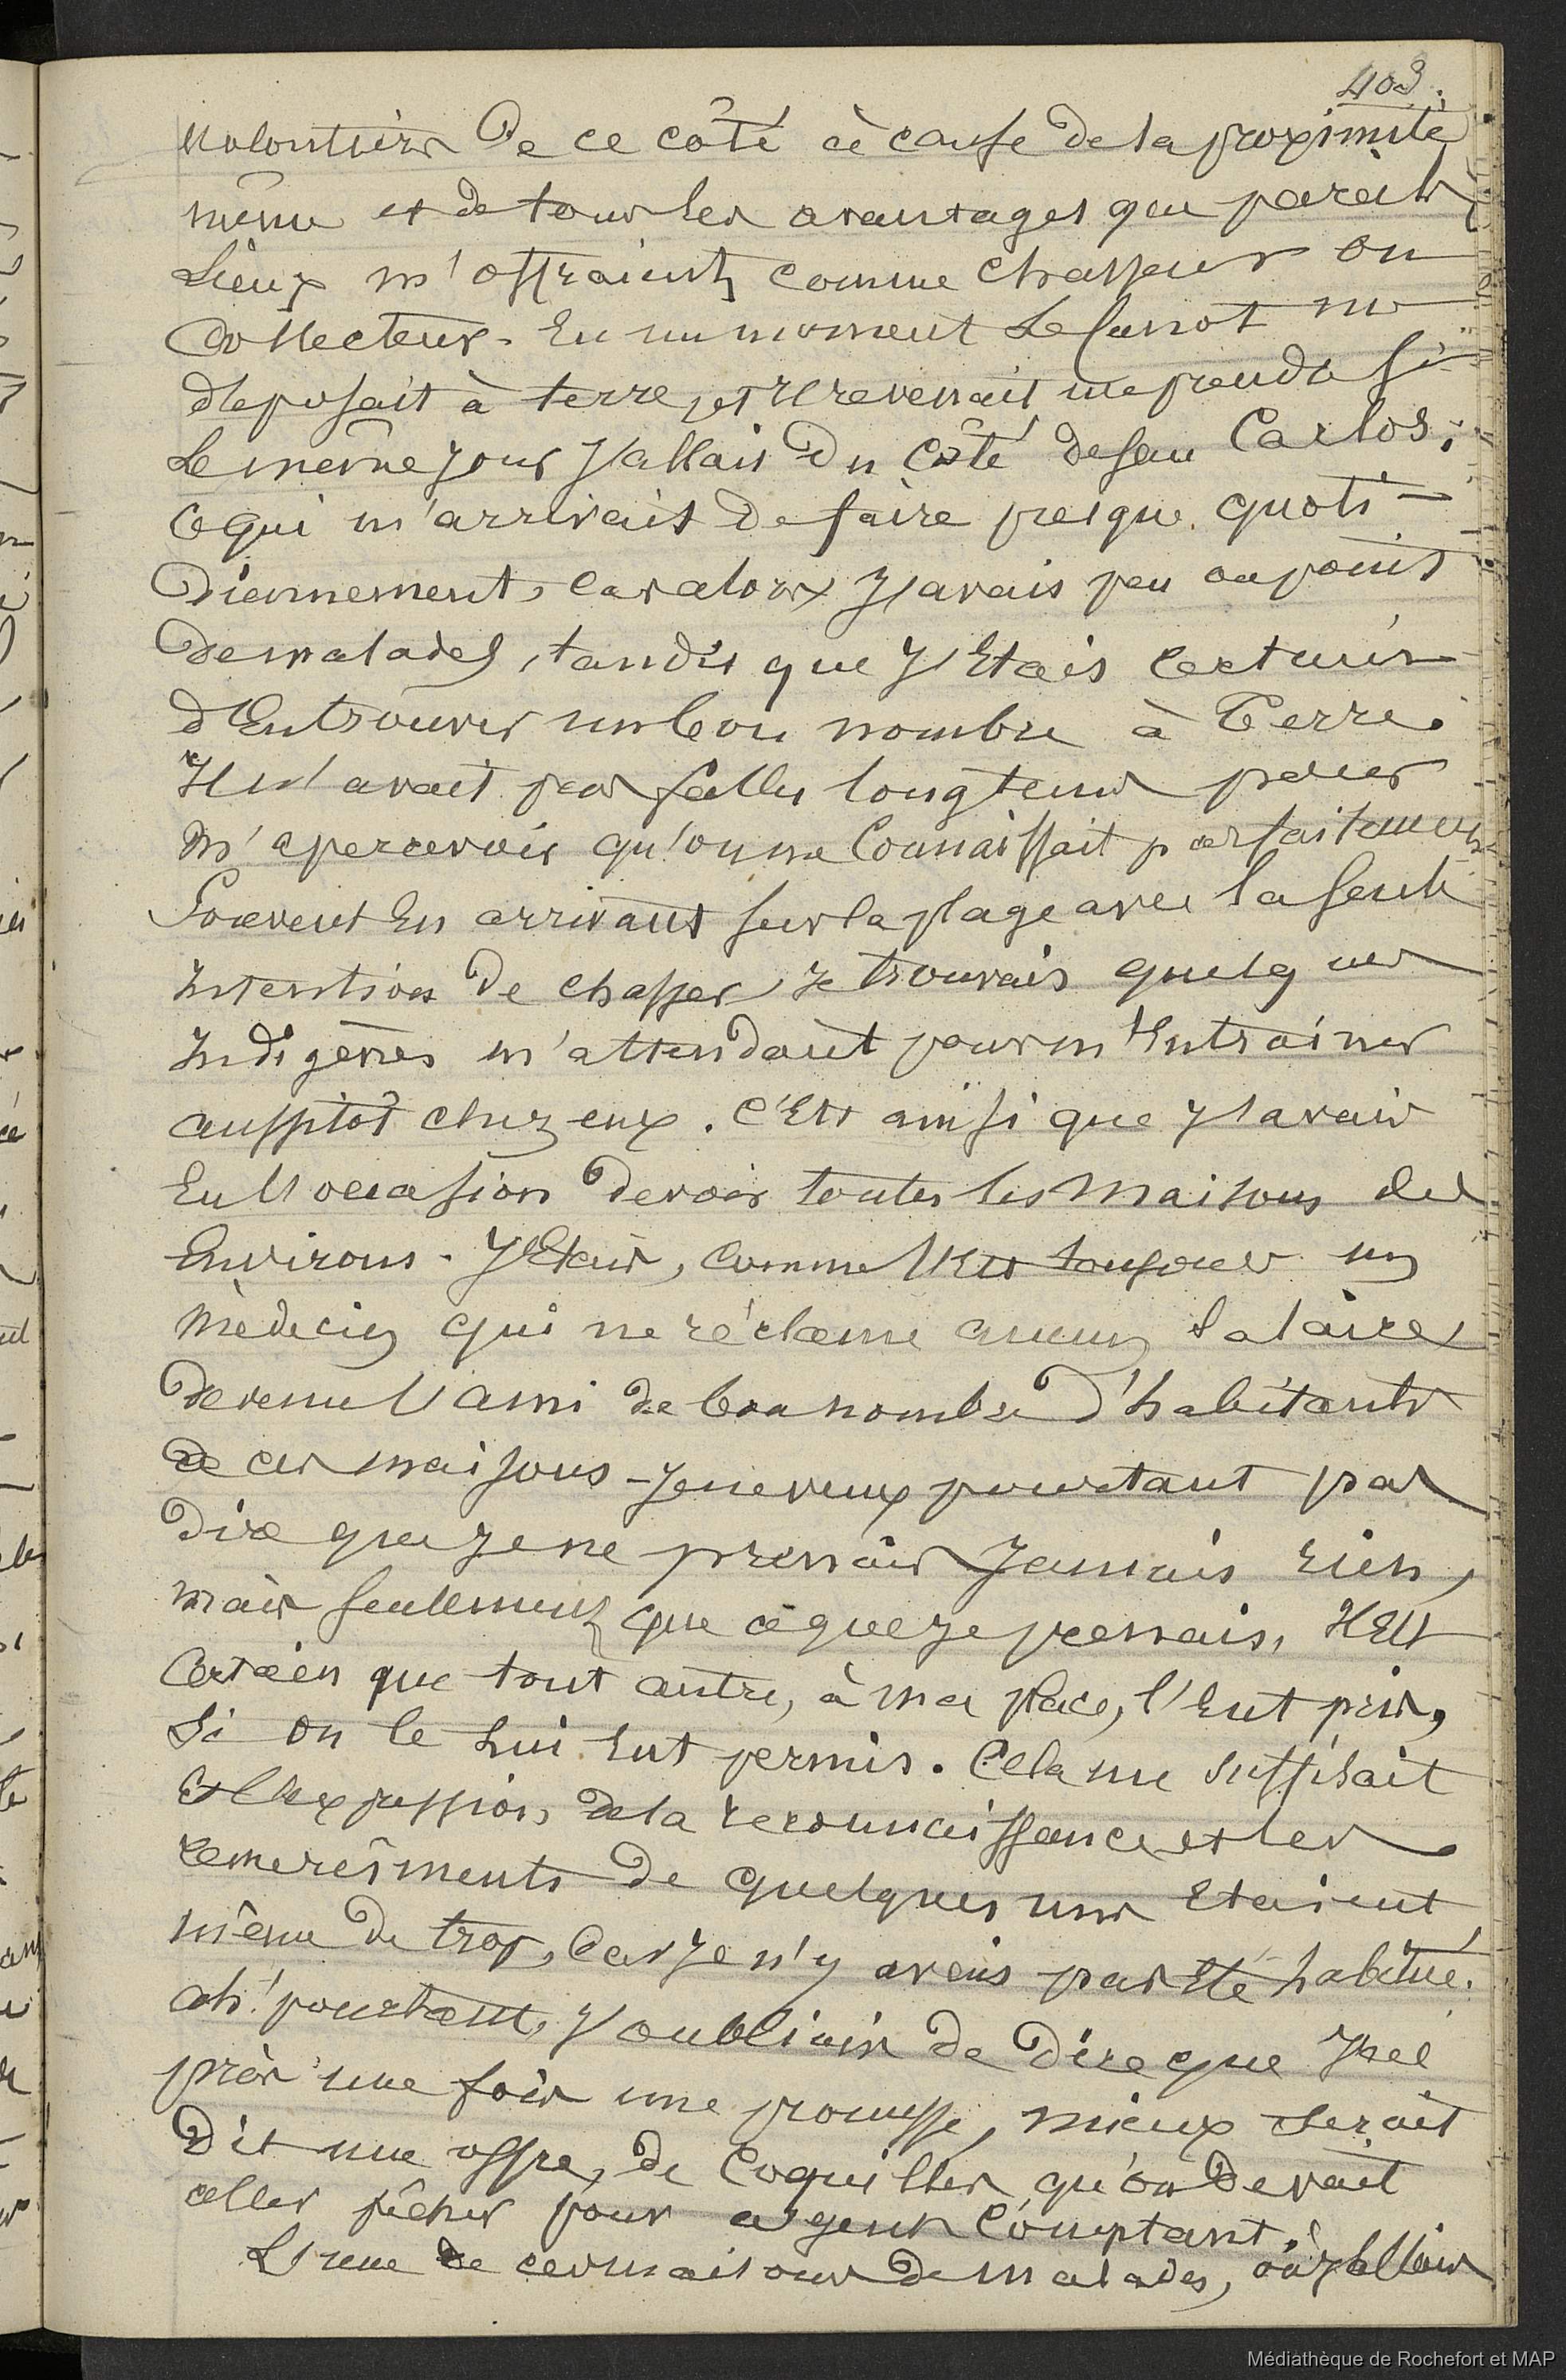 403.
volontiers De ce côté à cause de la proximité
même et de tous les avantages que pareils
Lieux m'offraient comme chasseur ou
Collecteur. En un moment Le canot me
déposait à terre, et il revenait me prendre si
Le même jour j'allais Du Côté de San Carlos;
Ce qui m'arrivait de faire presque quoti-
Diennement, Car alors j'avais peu ou point
De malades, tandis que j'Etais Certain
d'En trouver un bon nombre à Terre.
Il n'avait pas fallu longtems pour
m'apercevoir qu'on me Connaissait parfaitement
Souvent En arrivant sur la plage avec la seule
Intention De chasser, Je trouvais quelques
Indigènes m'attendant pour m'Entraîner
aussitôt chez eux. C'Est ainsi que j'avais
Eu l'occasion De voir toutes les maisons des
Environs. J'Etais, Comme l'Est toujours un
Médecin qui ne réclame aucun salaire
Devenu l'ami de bon nombre D'habitants
de ces maisons - Je ne veux pourtant pas
Dire que je ne prenais Jamais rien,
mais seulement que ce que je prenais, Il Est
Certain que tout autre, à ma place, l'Eut pris,
Si on le Lui Eut permis. Cela me suffisait
Et l'Expression de la reconnaissance et les
remercîments De quelques uns Etaient
même De trop, Car Je n'y avais pas Eté habitué.
ah! pourtant, j'oubliais De Dire que j'ai
pris une fois une promesse, mieux serait
Dit une offre, de Coquilles qu'on Devait
aller pêcher pour argent Comptant.
L'une de ces maisons De malades, où j'allais
Médiathèque de Rochefort et MAP